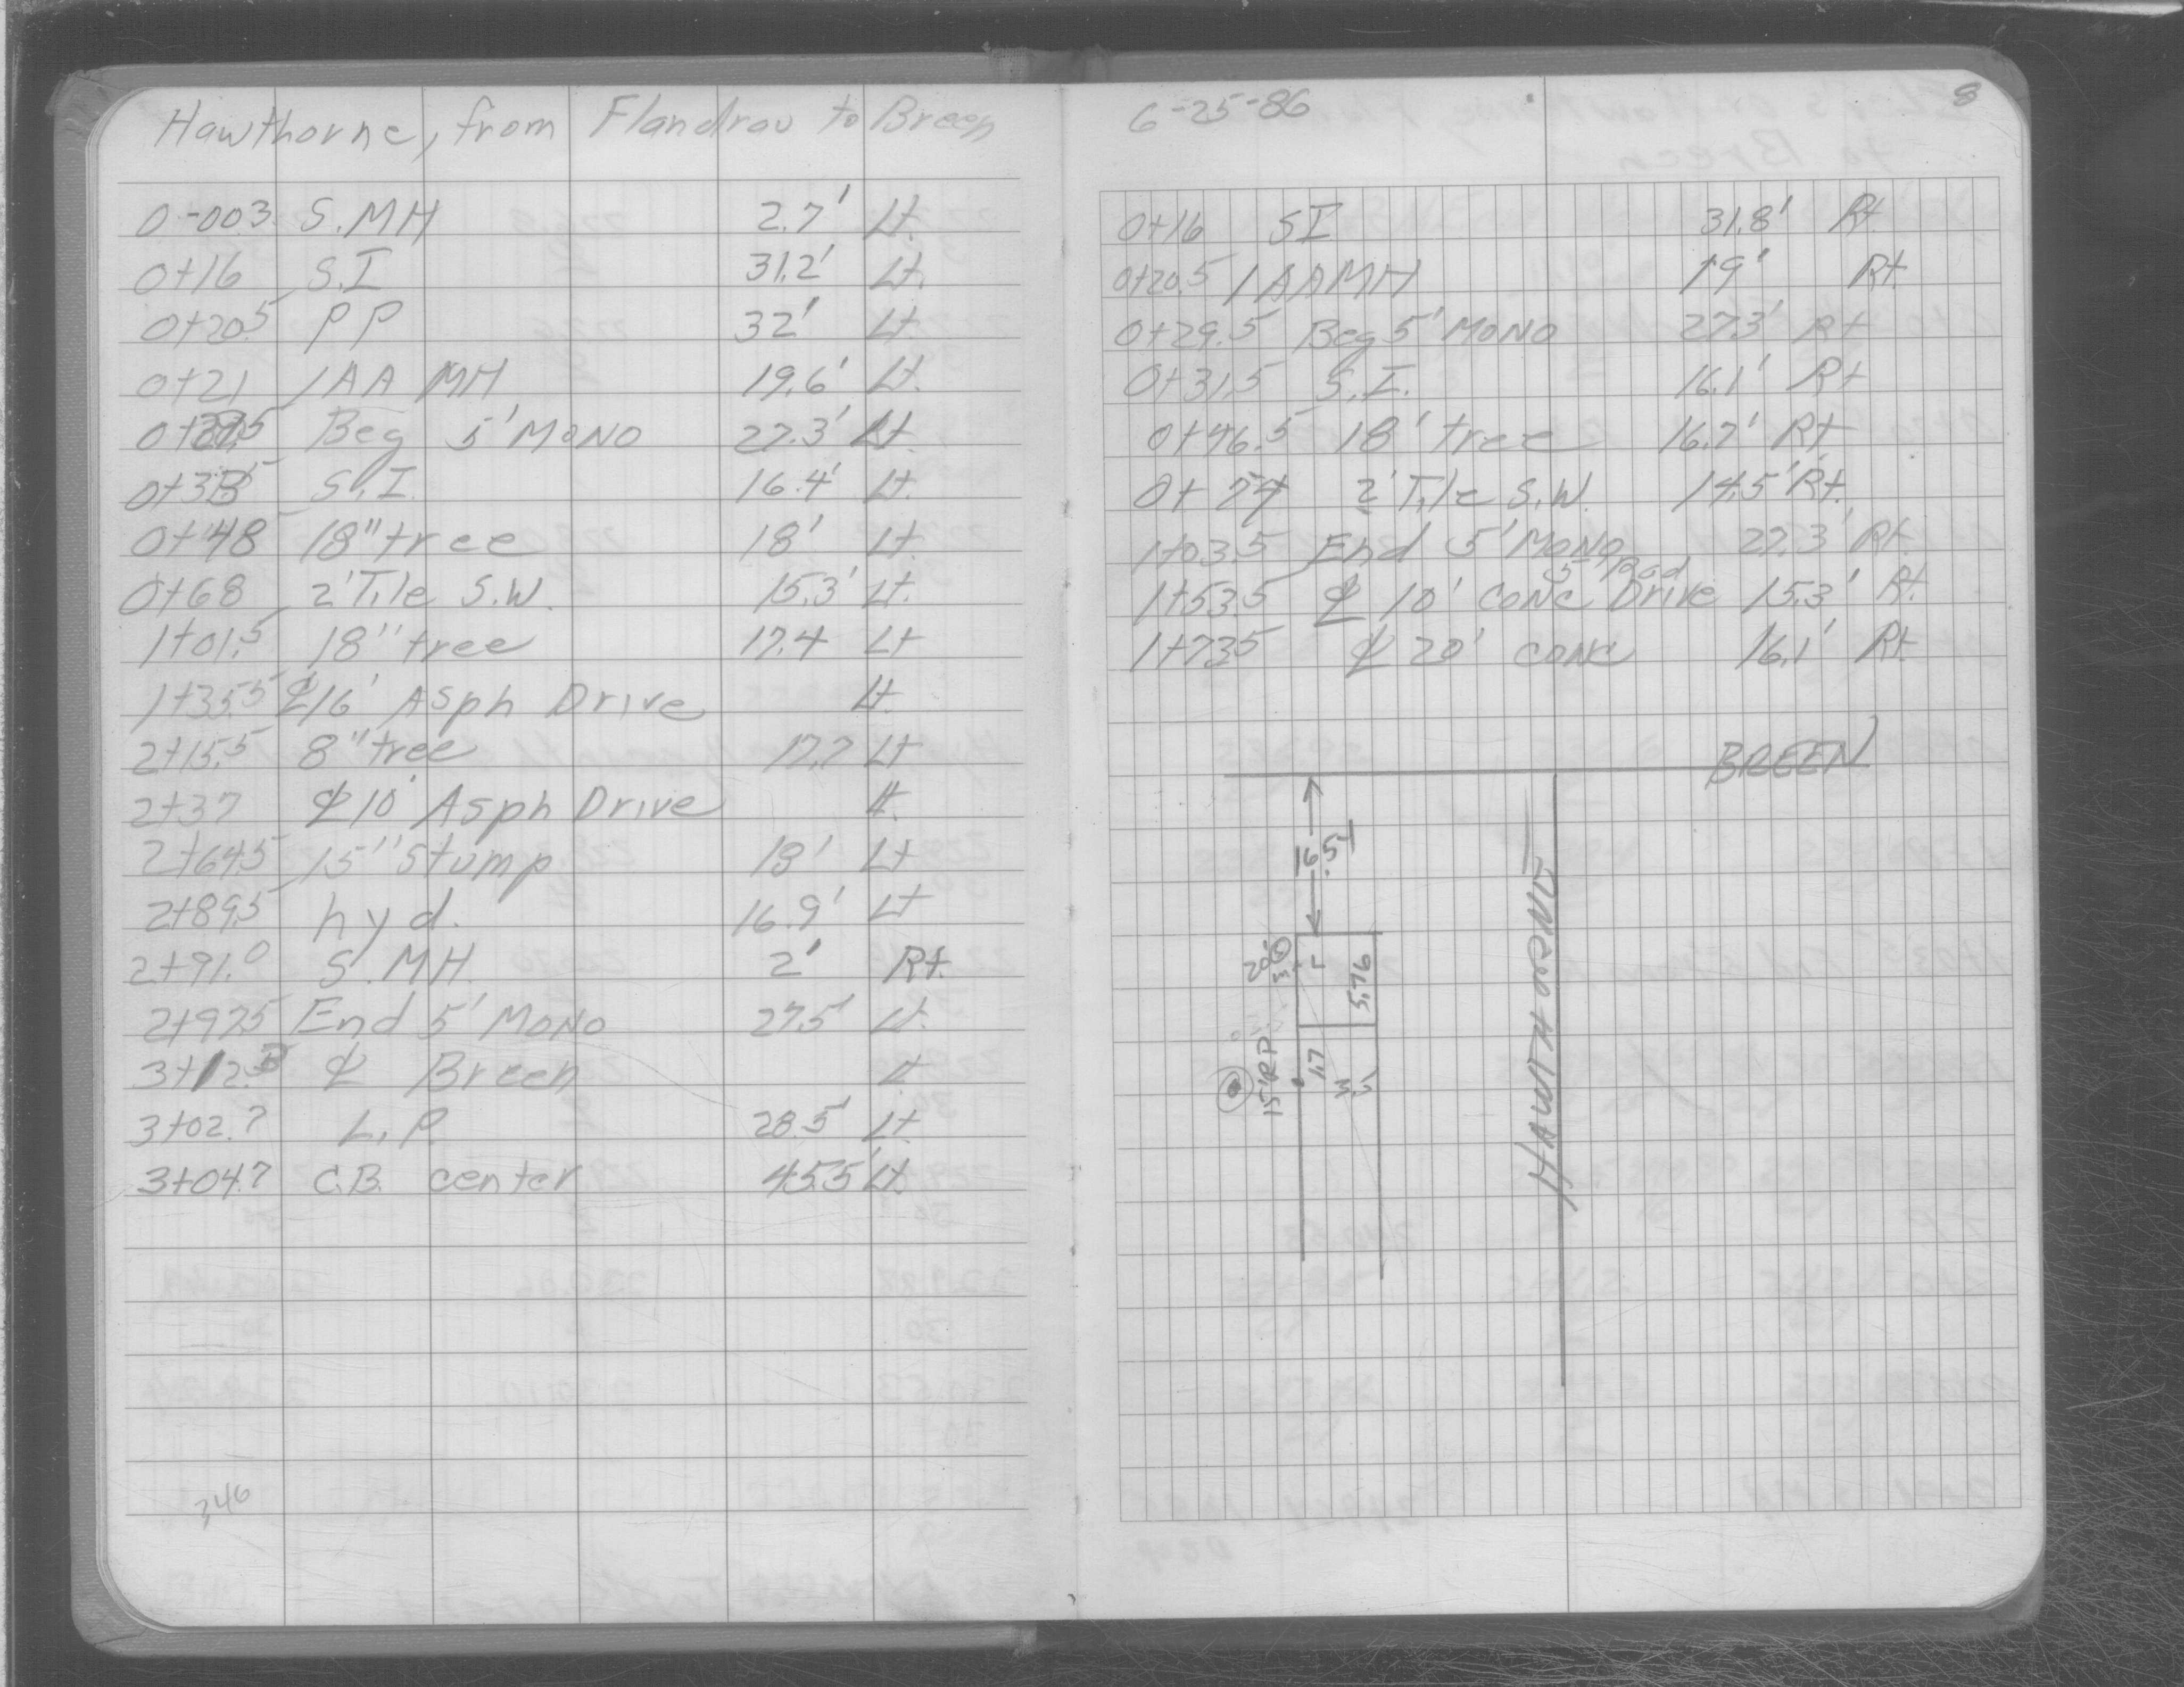 Hawthorne, from Flandrau to Breen
0-003 S.MH 2.7' Lt.
0+16 S.I 31.2' Lt.
0+20.5 PP 32' Lt.
0+21 1AA MH 19.6' Lt.
Beg 5' MONO 27.3' Lt.
S.I. 16.4' Lt.
0+48 18" tree 18' Lt.
0+68 2' Tile S.W. 15.3' Lt.
1+01.5 18" tree 17.4 Lt
1+35.5 ℄ 16' Asph Drive Lt.
2+15.5 8" tree 17.7 Lt
2+37 ℄ 10' Asph Drive Lt.
2+64.5 15" Stump 18' Lt
2+89.5 hyd. 16.9' Lt
2+91.0 S.MH. 2' Rt.
2+97.5 End 5' MONO 27.5' Lt.
℄ Breen Lt
3+02.7 L.P. 28.5' Lt.
3+04.7 C.B. center 45.5' Lt.
6-25-86
8
0+16 SI 31.8' Rt.
0+20.5 1AAMH 19' Rt.
0+29.5 Beg 5' MONO 27.3' Rt
0+31.5 S.I. 16.1' Rt
0+46.5 18' tree 16.7' Rt
0+74 2' Tile S.W. 14.5' Rt.
1+03.5 End 5' MONO 27.3' Rt.
1+53.5 ℄ 10' conc Drive 15.3' Rt.
1+73.5 ℄ 20' conc 16.1' Rt.
BREEN
16.54
HAWTHORNE
20'
5.76
15' RP
1.7